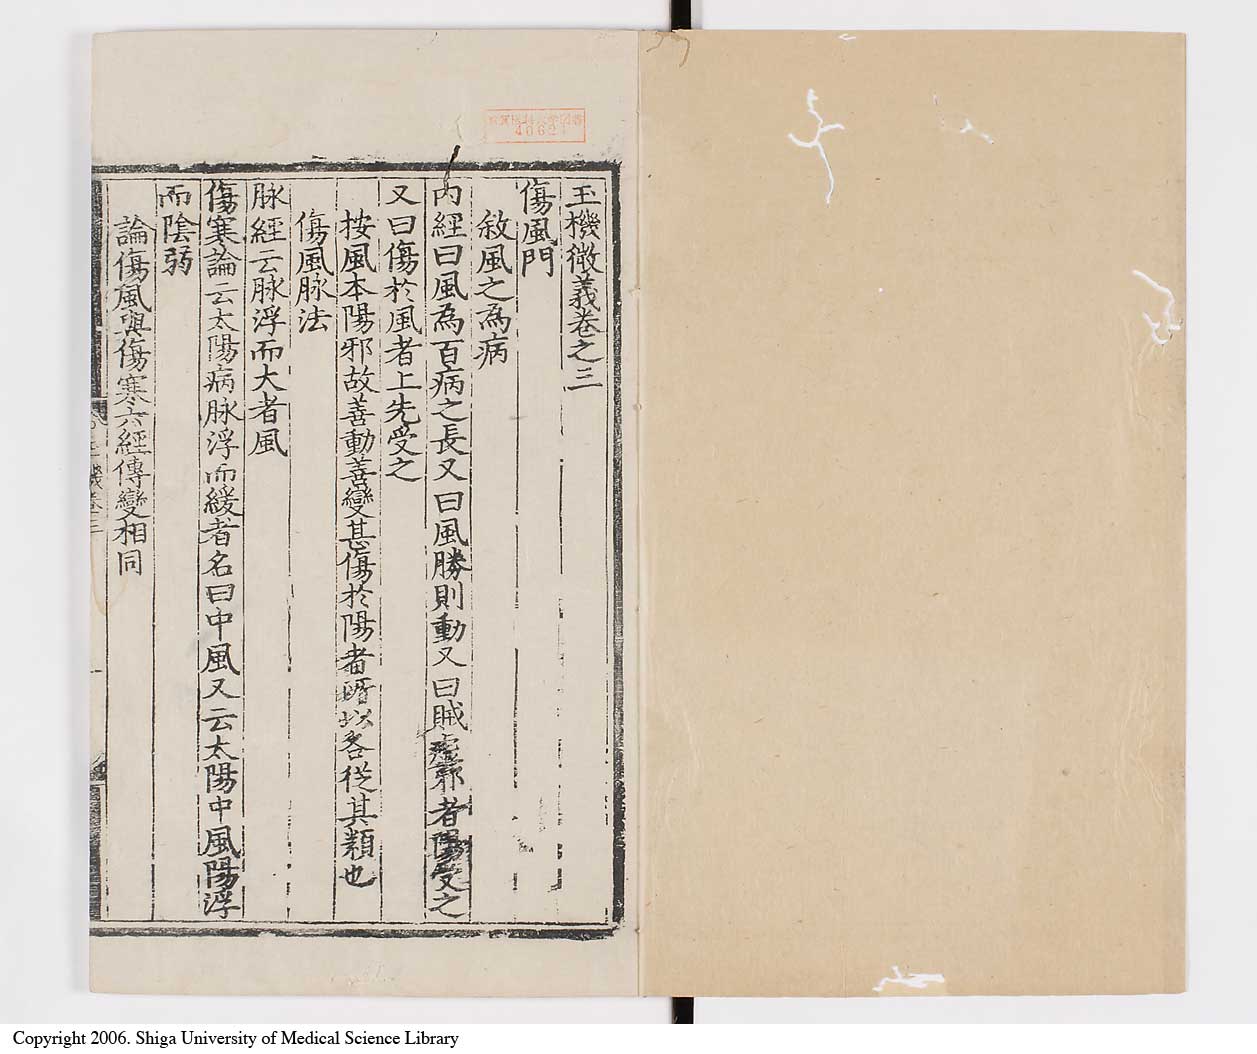 玉機微義卷之三
傷風門
敘風之為病
內經曰風為百病之長又曰風勝則動又曰賊風虛邪者陽受之
又曰傷於風者上先受之
按風本陽邪故善動善變甚傷於陽者所以各從其類也
傷風脉法
脉經云脉浮而大者風
傷寒論云太陽病脉浮而緩者名曰中風又云太陽中風陽浮
而陰弱
論傷風與傷寒六經傳變相同
機卷三
40621
Copyright 2006. Shiga University of Medical Science Library